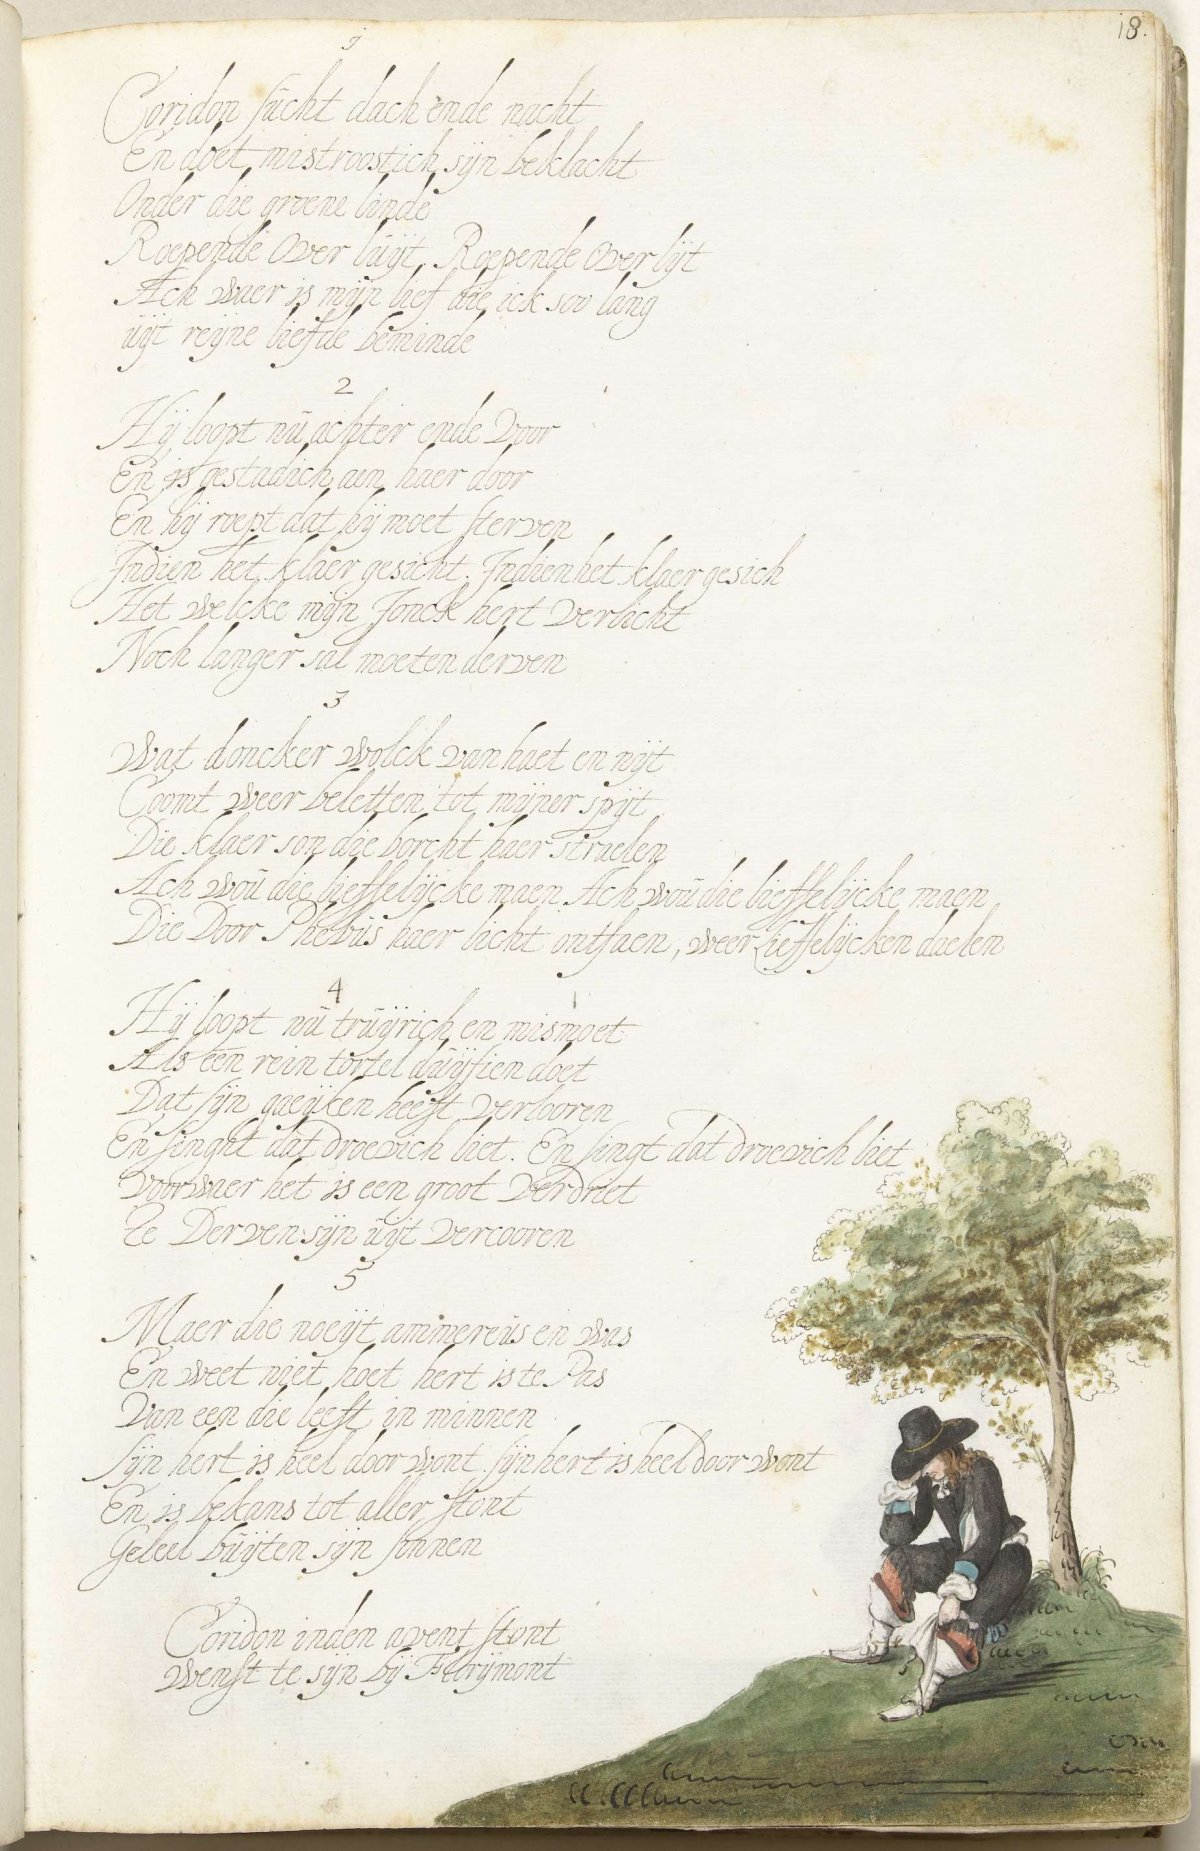 18.
1
Coridon sücht dach ende nacht
En doet mistroostich sÿn beklacht
Onder die groene linde
Roepende Over lüÿt, Roepende Over lÿt
Ach waer is mÿn lief die ick soo lang
üÿt reÿne liefde beminde
2
Hÿ loopt nü achter ende Voor
En is gestadich aen haer door
En hÿ roept dat hÿ moet sterven
Indien het klaer gesicht. Indien het klaer gesich
Het welcke mÿn Jonck hert Verlicht
Noch langer sal moeten derven
3
Wat doncker wolck van haet en nÿt
Coomt weer beletten tot mÿner spÿt
Die klaer son die borcht haer straelen
Ach woü die lieffelÿcke maen Ach woü die lieffelÿcke maen
Die Door Phebüs haer licht ontfaen, weer Lieffelÿcken daelen
4
Hÿ loopt nü trüÿrich en mismoet
Als een rein tortel düÿfien doet
Dat sÿn gaeÿken heeft verlooren
En singht dat droevich liet. En singt dat droevich liet
Voorwaer het is een groot Verdriet
Te Derven sÿn üÿt vercooren
5
Maer die noeÿt ammereüs en was
En weet niet hoet hert is te Pas
Van een die leeft in minnen
Sÿn hert is heel door wont sÿn hert is heel Door wont
En is bekans tot aller stont
Geleel büÿten sÿn sinnen
Coridon inden avent stont
Wenst te sÿn bÿ Florÿmont